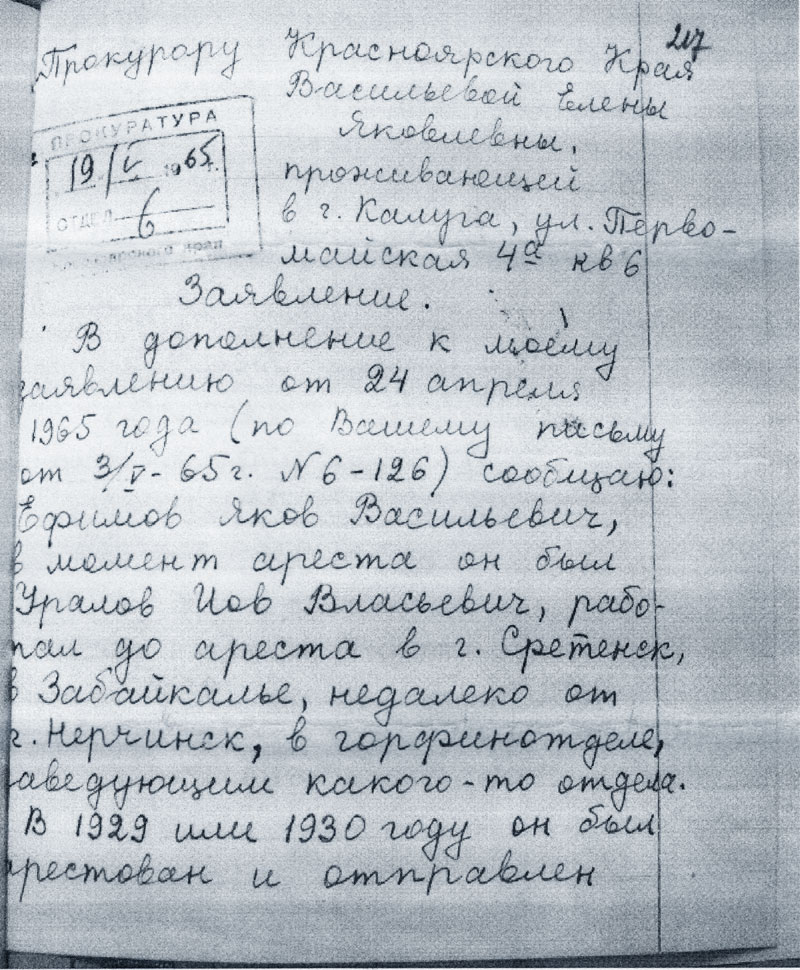 217
Прокурору Красноярского Края
Васильевой Елены
Яковлевны,
проживающей
в г. Калуга, ул. Перво-
майская 4а кв 6
ПРОКУРАТУРА
19/V 1965 г.
ОТДЕЛ 6
Заявление.
В дополнение к моему
заявлению от 24 апреля
1965 года (по Вашему письму
от 3/V-65 г. N 6-126) сообщаю:
Ефимов Яков Васильевич,
в момент ареста он был
Уралов Иов Власьевич, рабо-
тал до ареста в г. Сретенск,
в Забайкалье, недалеко от
г. Нерчинск, в горфинотделе,
заведующим какого-то отдела.
В 1929 или 1930 году он был
арестован и отправлен